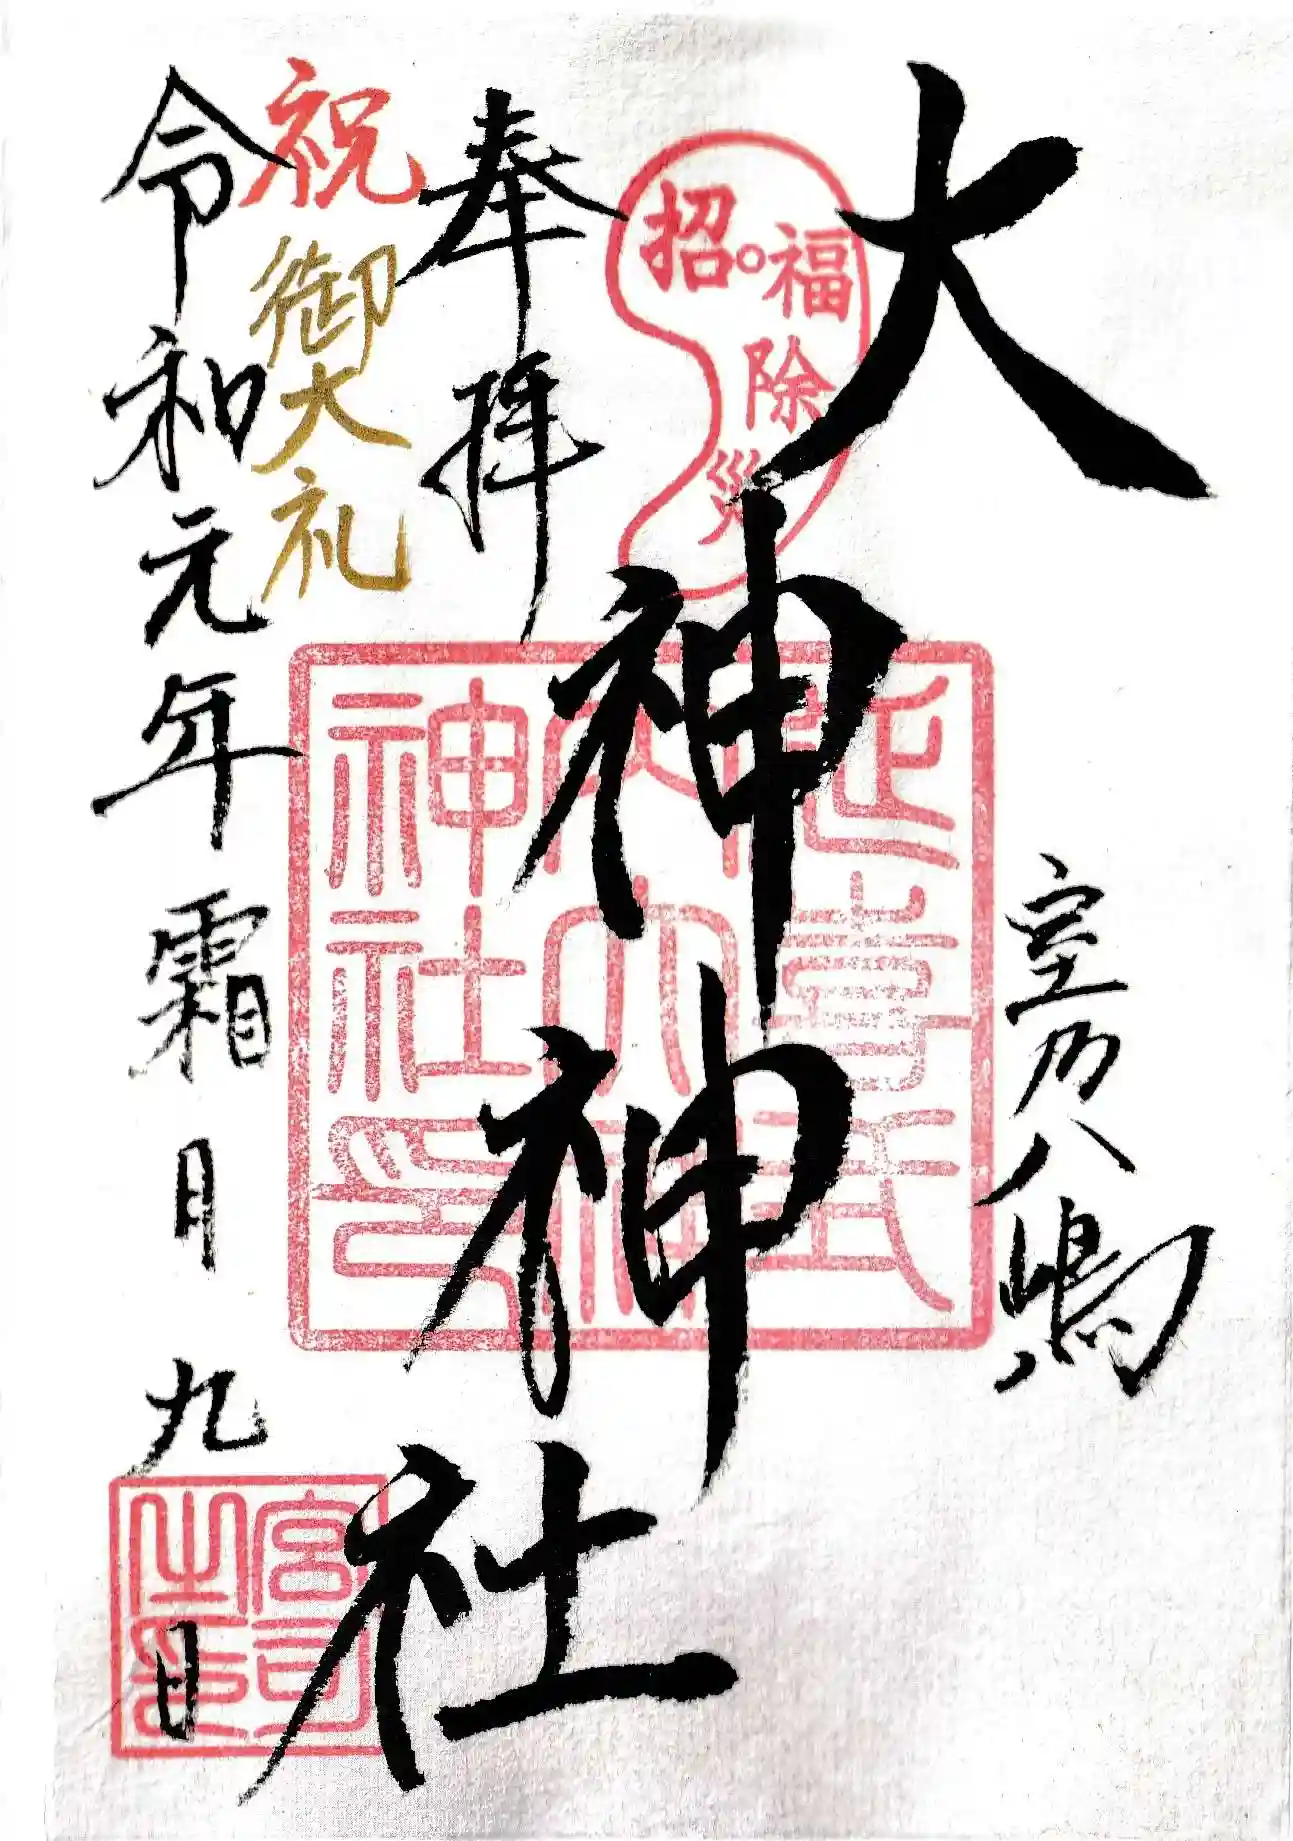 室乃八嶋
大神神社
招福除災
延喜式
内大神
神社印
奉拝
祝
御大礼
令和元年霜月九日
宮司之印